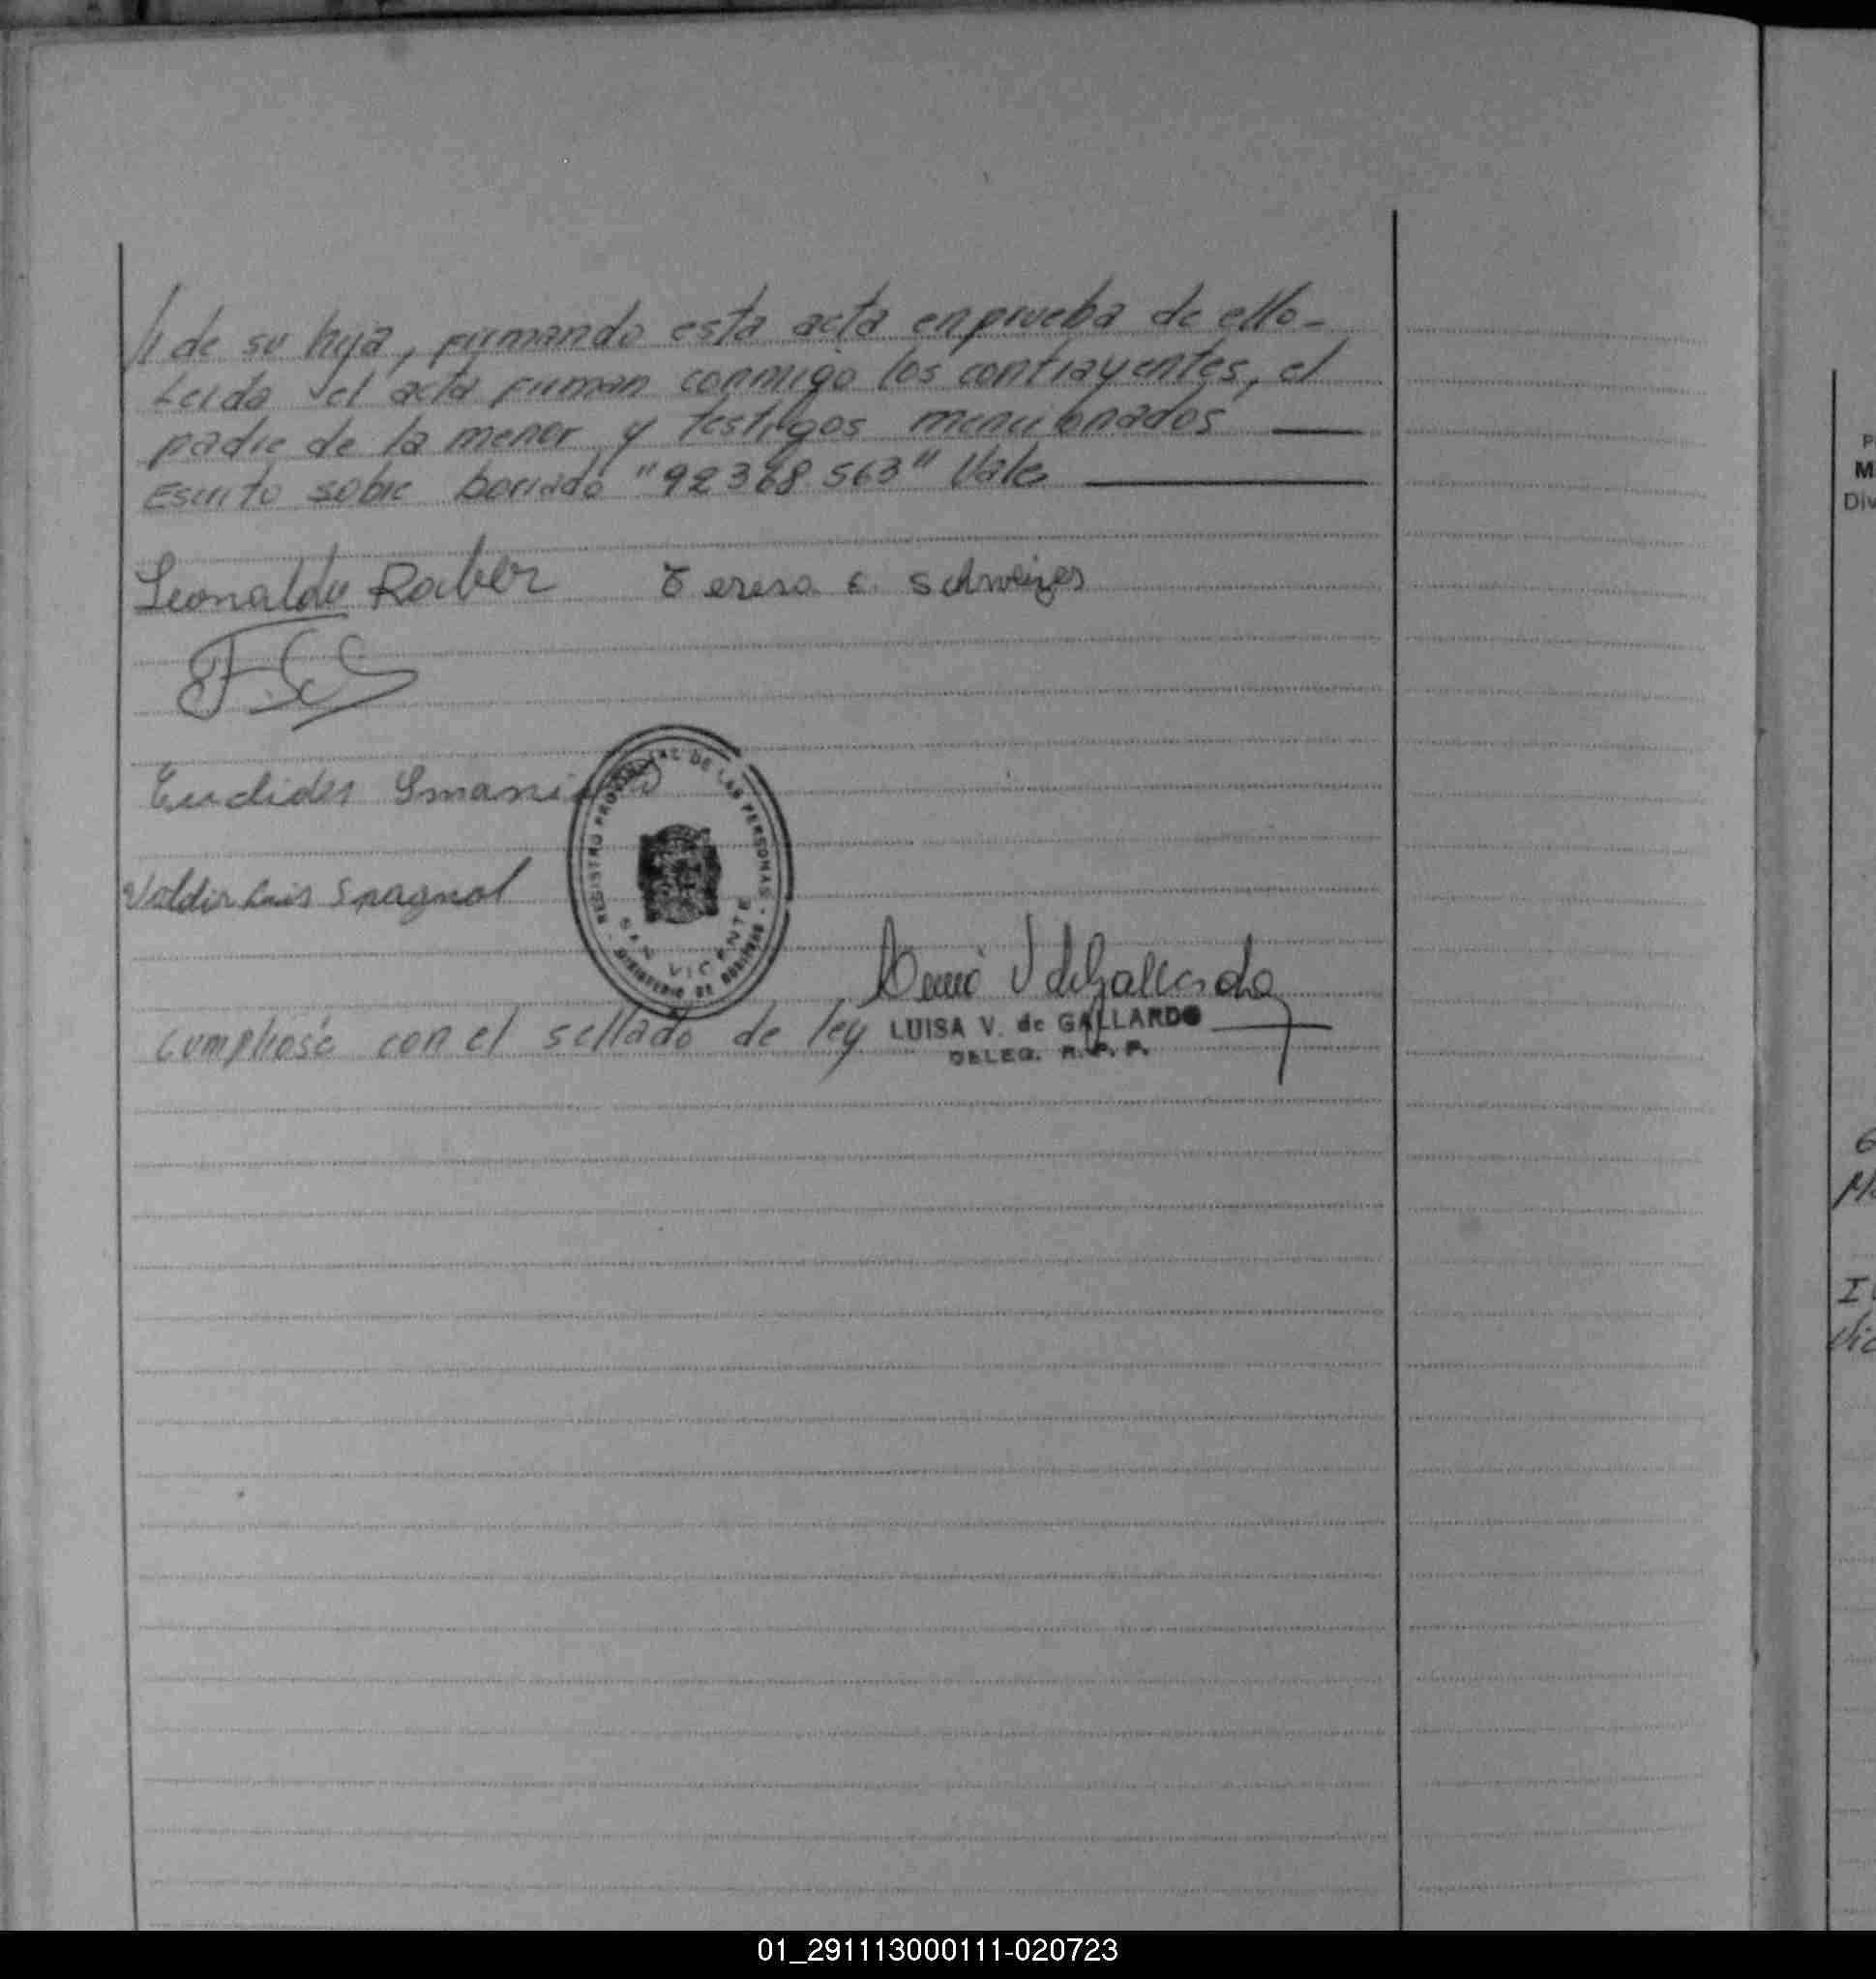 // de su hija, firmando esta acta en prueba de ello-
Leida el acta firman conmigo los contrayentes, el
padre de la menor y testigos mencionados
Escrito sobre borrado "92368.563" Vale
Leonaldo Raber Teresa E. Schweizer
Euclides Smani
Valdir Luis Spagnol
REGISTRO PROVINCIAL DE LAS PERSONAS
SAN VICENTE
MINISTERIO DE GOBIERNO
V de Gallardo
Cumpliose con el sellado de ley
LUISA V. de GALLARDO
DELEG. R. P. P.
P
M
Div
01_291113000111-020723